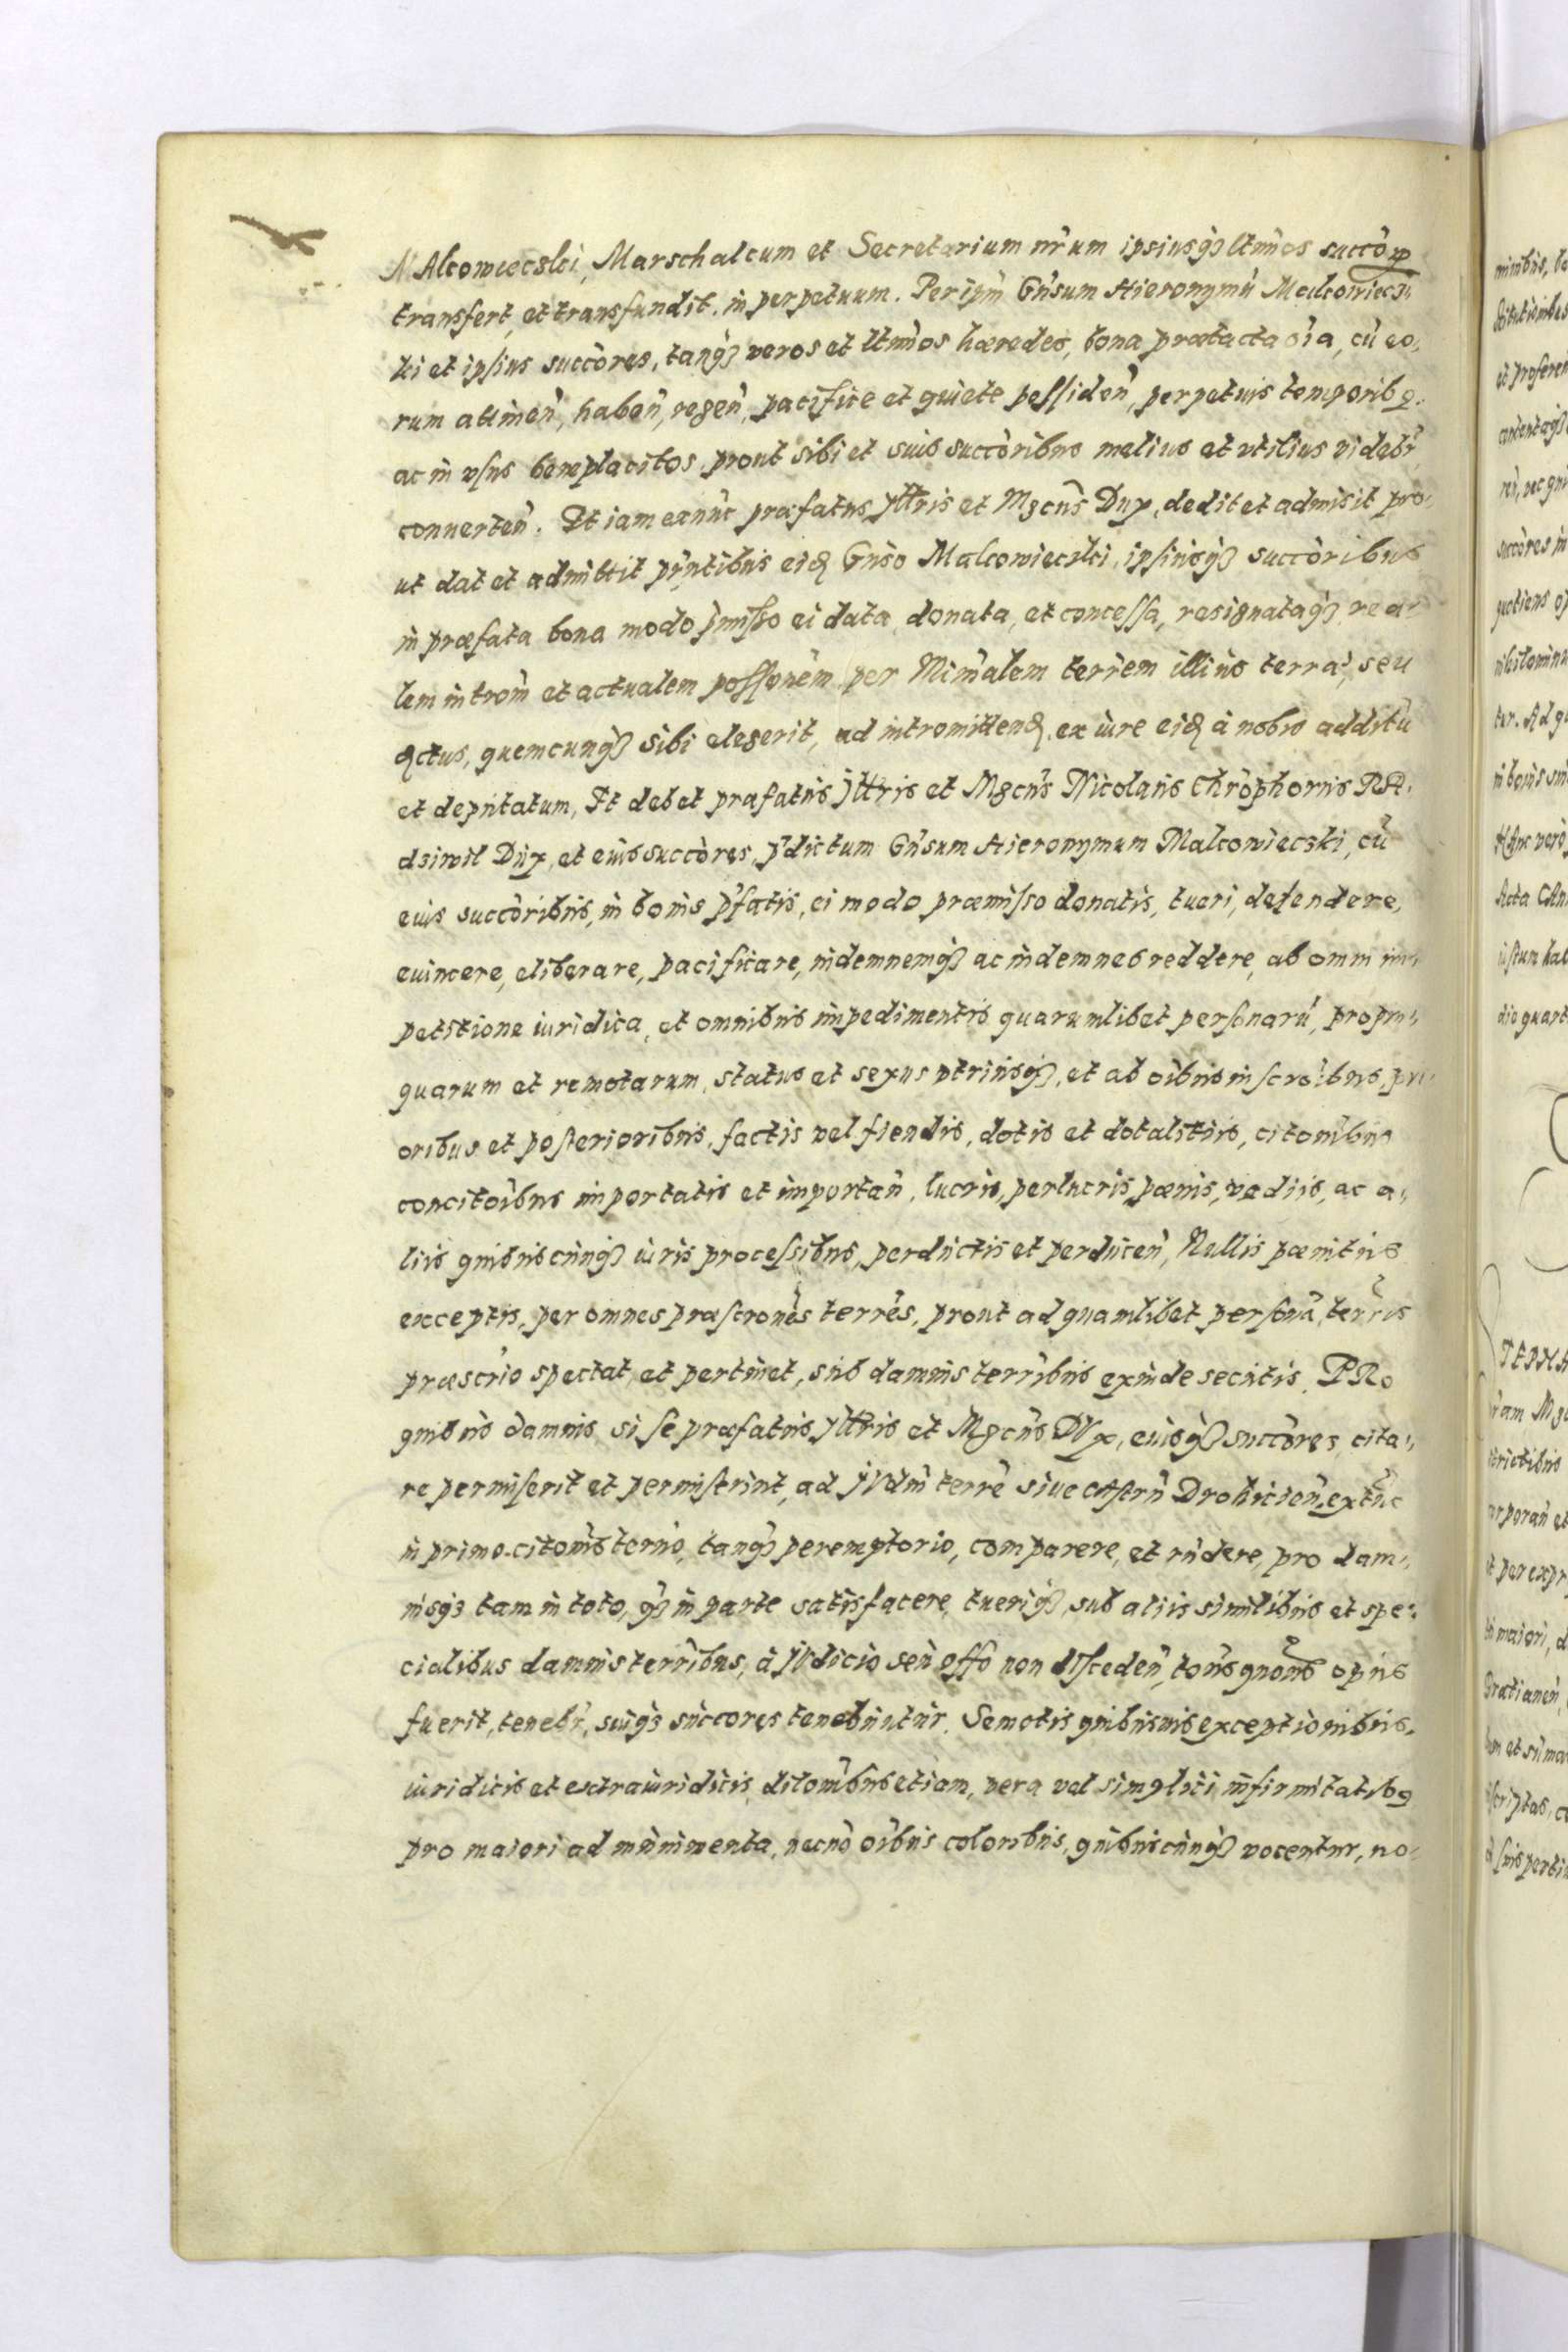 MAlcowieczki, Marschalcum et Secretarium nr̃um ipsiusq3 ltimos succor
transfert, et transfundit in perpetuum. Per ipm̃ Gñsum Hieronymũ Malcowiecz
ki et ipsius succores, tanq3 veros et ltimos hæredes, bona prætacta oĩa, cũ eo,
rum attineñ, habeñ, regeñ, pacifice et quiete possideñ, perpetuis temporibq.
ac in vsus beneplacitos, prout sibi et suis succoribus melius et vtilius videbr̃
conuerteñ. Et iam exnũc præfatus Jllris et Mgcñs Dux, dedit et admisit pro-
ut dat et admittit pñtibus eid Gñso Malcowieczki, ipsiusq3 succoribus
in præfata bona modo pmisso ei data, donata, et concessa, resignataq3 rea-
lem introm̃ et actualem possionem per Mim̃alem terrem illius terræ, seu
dctus, quemcunq3 sibi elegerit, ad intromittend, ex iure eid à nobis additũ
et deputatum, Et debet præfatus Jllris et Mgcñs Nicolaus Chrophorus RA-
dziwil Dux, et eius succores, p̃dictum Gñsum Hieronymum Malcowieczki, cũ
eius succoribus, in bonis p̃fatis, ei modo præmisso donatis, tueri, defendere,
euincere, eliberare, pacificare, indemnemq3 ac indemnes reddere, ab omni im-
petitione iuridica, et omnibus impedimentis quarumlibet personarũ, propin-
quarum et remotarum, status et sexus vtriusq3, et ab oĩbus inscroĩbus, pri-
oribus et posterioribus, factis vel fiendis, dotis et dotalitiis, citonibus
concitoĩbus importatis et importañ, lucris, perlucris, pænis, vadiis, ac a-
liis quibuscunq3 iuris processibus, perductis et perduceñ, Nullis pænitus
exceptis, per omnes præscrones terres, prout ad quamlibet personã, terris
præscrio spectat, et pertinet, sub damnis terribus exinde secutis. PRo
quibus damnis si se præfatus Jllris et Mgcñs DVx, eiusq3 succores, cita-
re permiserit et permiserint, ad JVdm̃ terre siue castrñ Drohicieñ, extũc
in primo citonis termo, tanq3 peremptorio, comparere, et rñdere, pro dam-
nisq3 tam in toto, q3 in parte satisfacere, tueriq3, sub aliis similibus et spe-
cialibus damnis terribus, à JVdicio seu offo non discedeñ, tons quons opus
fuerit, tenebr̃, suiq3 succores tenebuntur. Semotis quibusuis exceptionibus,
iuridicis et extraiuridicis, dilonibus etiam, vera vel simplici infirmitatibq
pro maiori ad munimenta, necno oĩbus coloribus, quibuscunq3 vocentur, no-